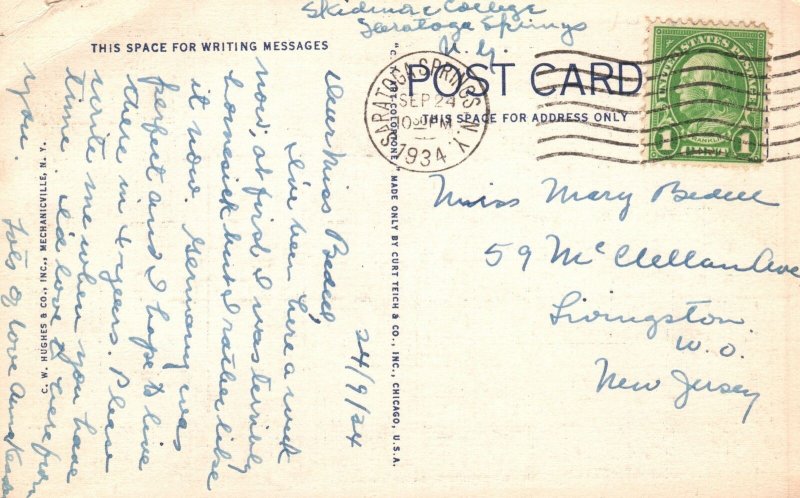 Skidmore College
Saratoga Springs
N.Y.
THIS SPACE FOR WRITING MESSAGES
24/9/34
Dear Miss Bedell,
I've been here a week
now, at first I was terribly
homesick but I rather like
it now. Germany was
perfect and I hope to live
there in 4 years. Please
write me when you have
time. I'd love to hear from
you.
Lots of love
C. W. HUGHES & CO., INC., MECHANICVILLE, N. Y.
"C.T. ART-COLORTONE" MADE ONLY BY CURT TEICH & CO., INC., CHICAGO, U.S.A.
POST CARD
THIS SPACE FOR ADDRESS ONLY
SARATOGA SPRINGS, N.Y.
SEP 24
PM
1934
UNITED STATES POSTAGE
FRANKLIN
1 CENT 1
Miss Mary Bedell
59 McClellan Ave
Livingston
W. O.
New Jersey